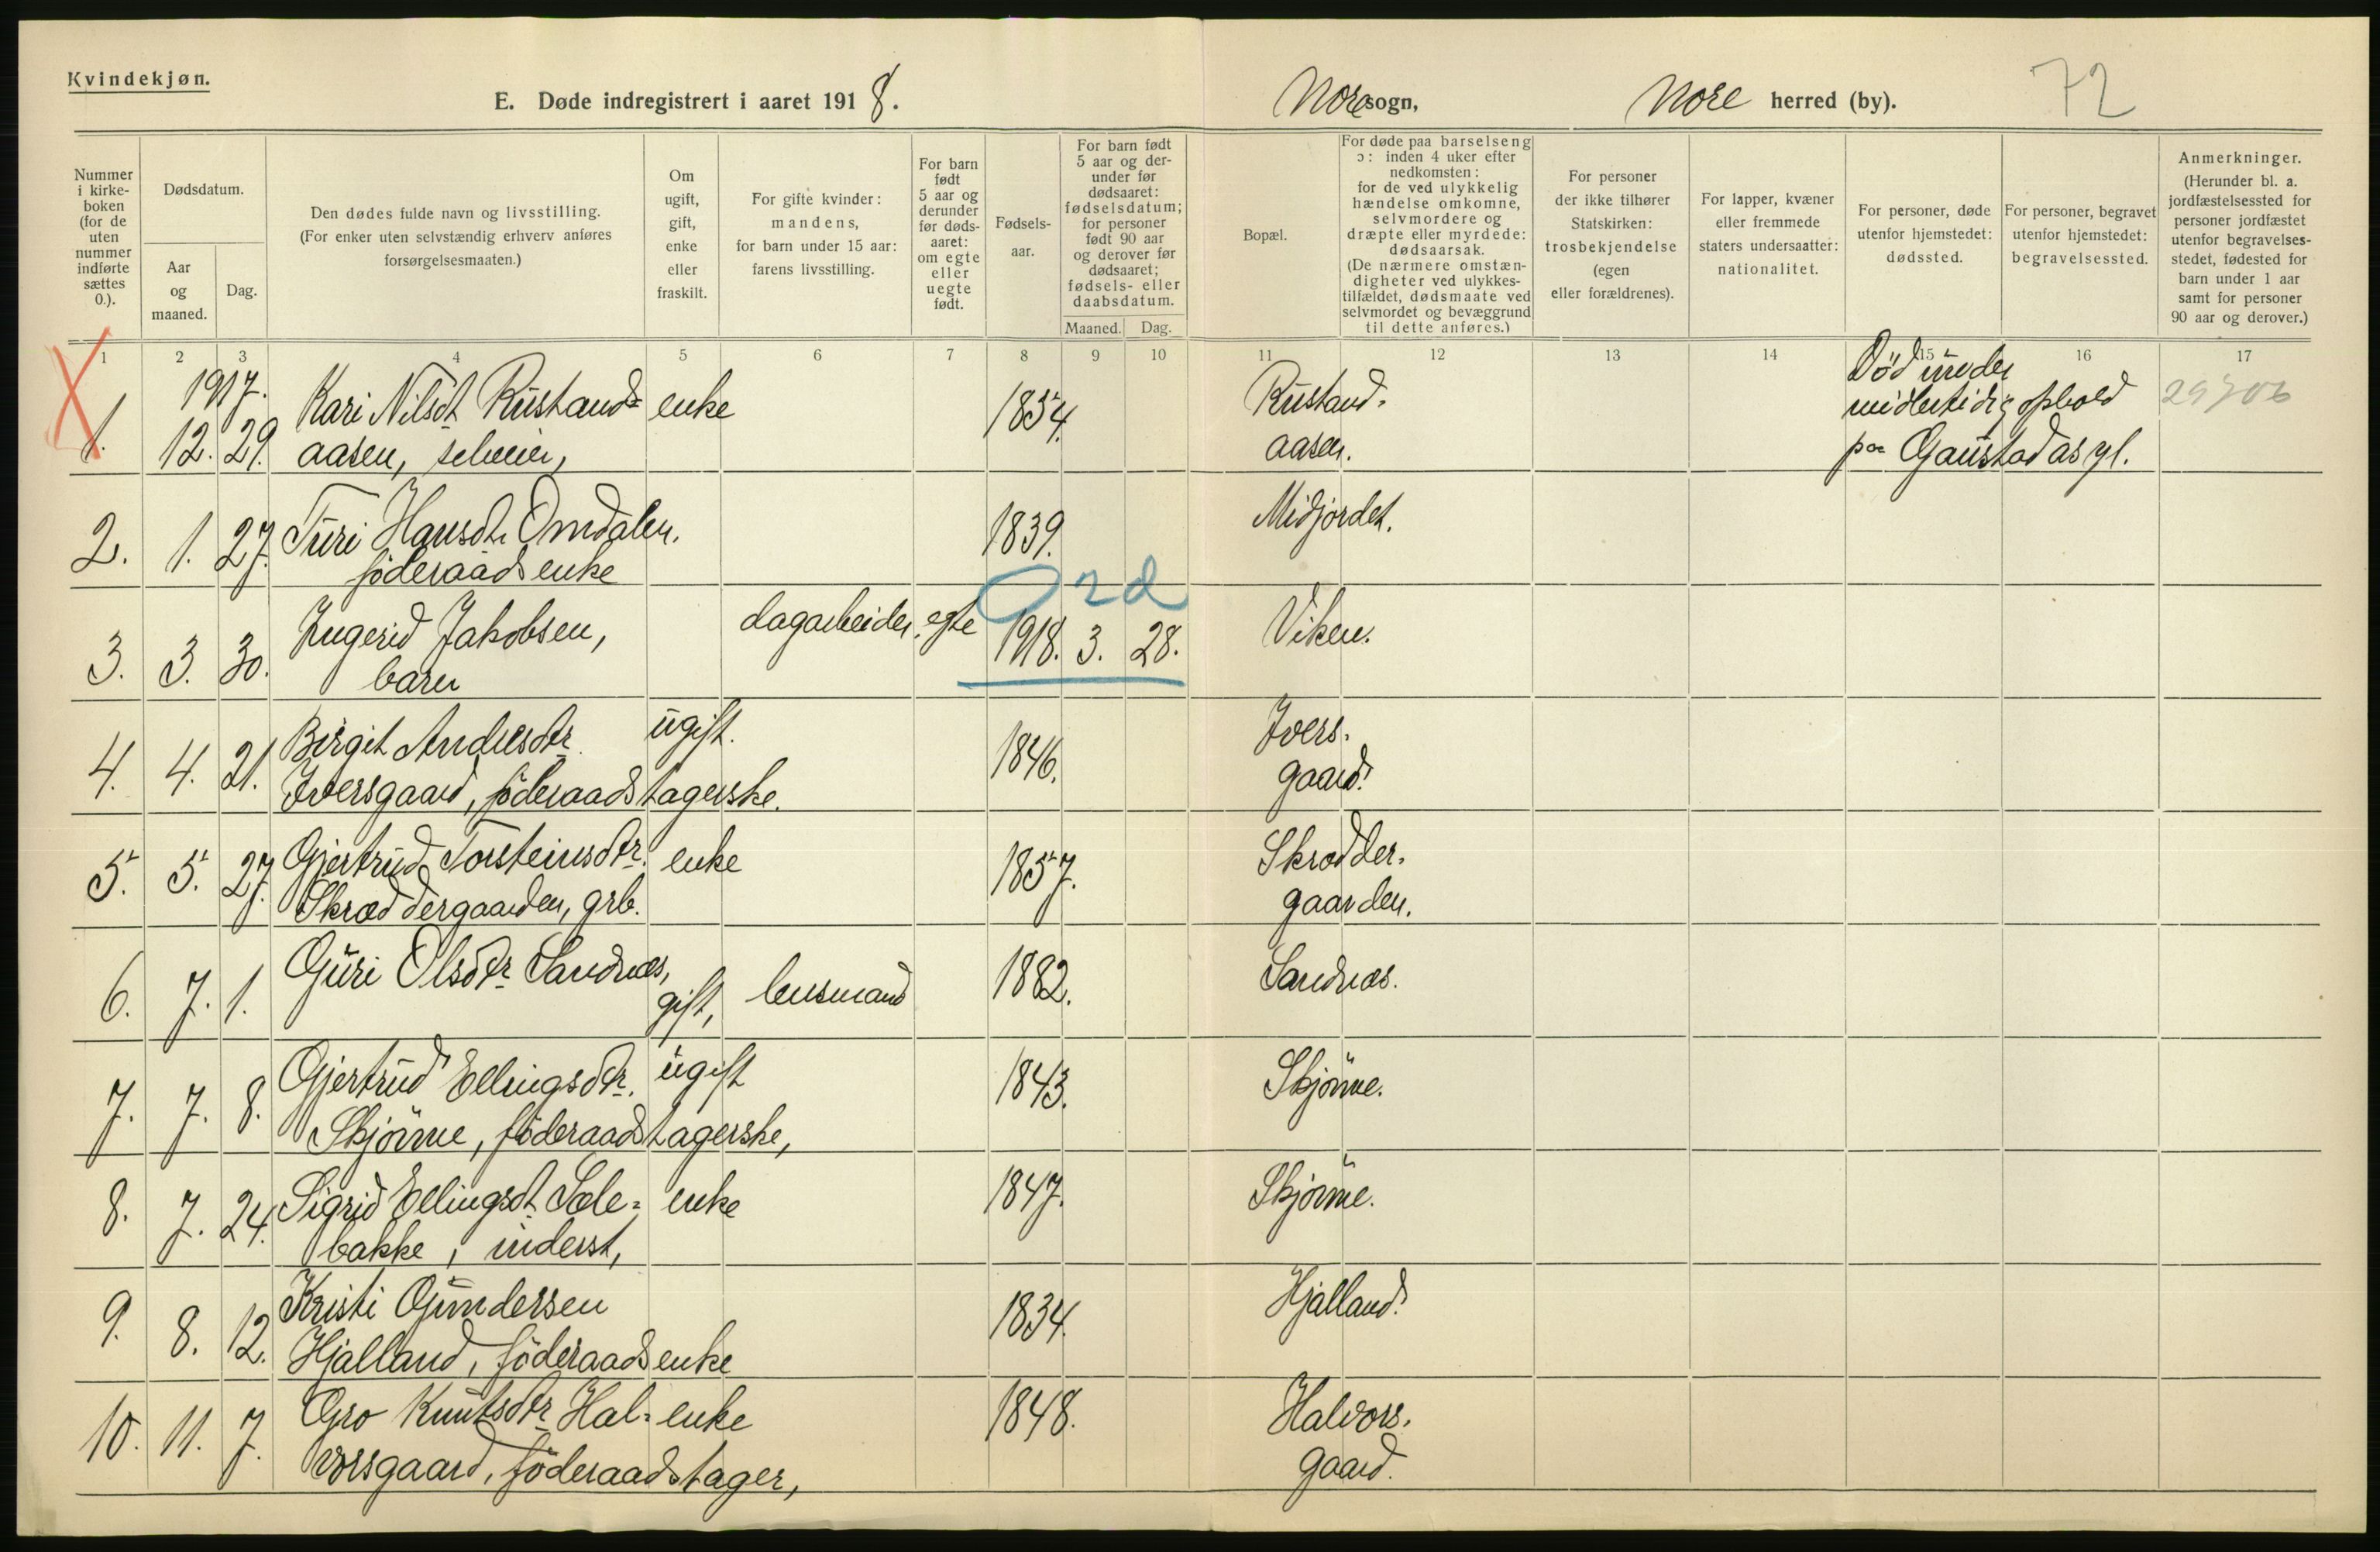 Kvindekjøn.
E. Døde indregistrert i aaret 1918. Nore sogn, Nore herred (by). 72
Nummer i kirke-boken (for de uten nummer indførte sættes 0.).
Dødsdatum.
Aar og maaned.
Dag.
Den dødes fulde navn og livsstilling.
(For enker uten selvstændig erhverv anføres forsørgelsesmaaten.)
Om ugift, gift, enke eller fraskilt.
For gifte kvinder: mandens, for barn under 15 aar: farens livsstilling.
For barn født 5 aar og derunder før døds-aaret: om egte eller uegte født.
Fødsels-aar.
For barn født 5 aar og der-under før dødsaaret: fødselsdatum; for personer født 90 aar og derover før dødsaaret; fødsels- eller daabsdatum.
Maaned. Dag.
Bopæl.
For døde paa barselseng ɔ: inden 4 uker efter nedkomsten: for de ved ulykkelig hændelse omkomne, selvmordere og dræpte eller myrdede: dødsaarsak.
(De nærmere omstæn-digheter ved ulykkes-tilfældet, dødsmaate ved selvmordet og bevæggrund til dette anføres.)
For personer der ikke tilhører Statskirken: trosbekjendelse (egen eller forældrenes).
For lapper, kvæner eller fremmede staters undersaatter: nationalitet.
For personer, døde utenfor hjemstedet: dødssted.
For personer, begravet utenfor hjemstedet: begravelsessted.
Anmerkninger.
(Herunder bl. a. jordfæstelsessted for personer jordfæstet utenfor begravelses-stedet, fødested for barn under 1 aar samt for personer 90 aar og derover.)
1 2 3 4 5 6 7 8 9 10 11 12 13 14 15 16 17
1917. Kari Nilsdt Rustand= enke 1854. Rustand- Død under midlertidig ophold
1. 12. 29. aasen, selveier, aasen. paa Gaustad asyl.
2. 1. 27. Turi Hansdt. Omdalen. 1839. Midjordet.
föderaadsenke
3. 3. 30. Ingerid Jakobsen, dagarbeider, egte 1918. 3. 28. Viken.
barn
4. 4. 21. Birgit Andersdtr ugift. 1846. Ivers-
Iversgaard, föderaadstagerske. gaard.
5. 5. 27. Gjertrud Torsteinsdtr. enke 1857. Skrædder-
Skræddergaarden, grb. gaarden.
6. 7. 1. Guri Olsdtr Sandnæs, gift, lensmand 1882. Sandnæs.
7. 7. 8. Gjertrud Ellingsdtr. ugift 1843. Skjönne.
Skjönne, föderaadstagerske,
8. 7. 24. Sigrid Ellingsdt Sole= enke 1847. Skjönne.
bakke, inderst,
9. 8. 12. Kristi Gundersen 1834. Hjalland.
Hjalland, föderaadsenke
10. 11. 7. Gro Knutsdtr Hal- enke 1848. Halvors-
vorsgaard, föderaadstager, gaard.